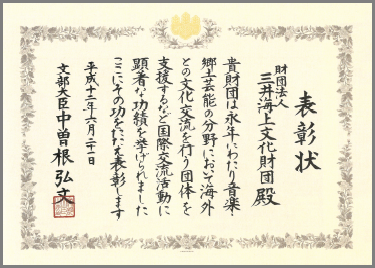 表彰状
財団法人
三井海上文化財団殿
貴財団は永年にわたり音楽
郷土芸能の分野において海外
との文化交流を行う団体を
支援するなど国際交流活動に
顕著な功績を挙げられました
ここにその功をたたえ表彰します
平成十二年六月二十一日
文部大臣中曽根弘文